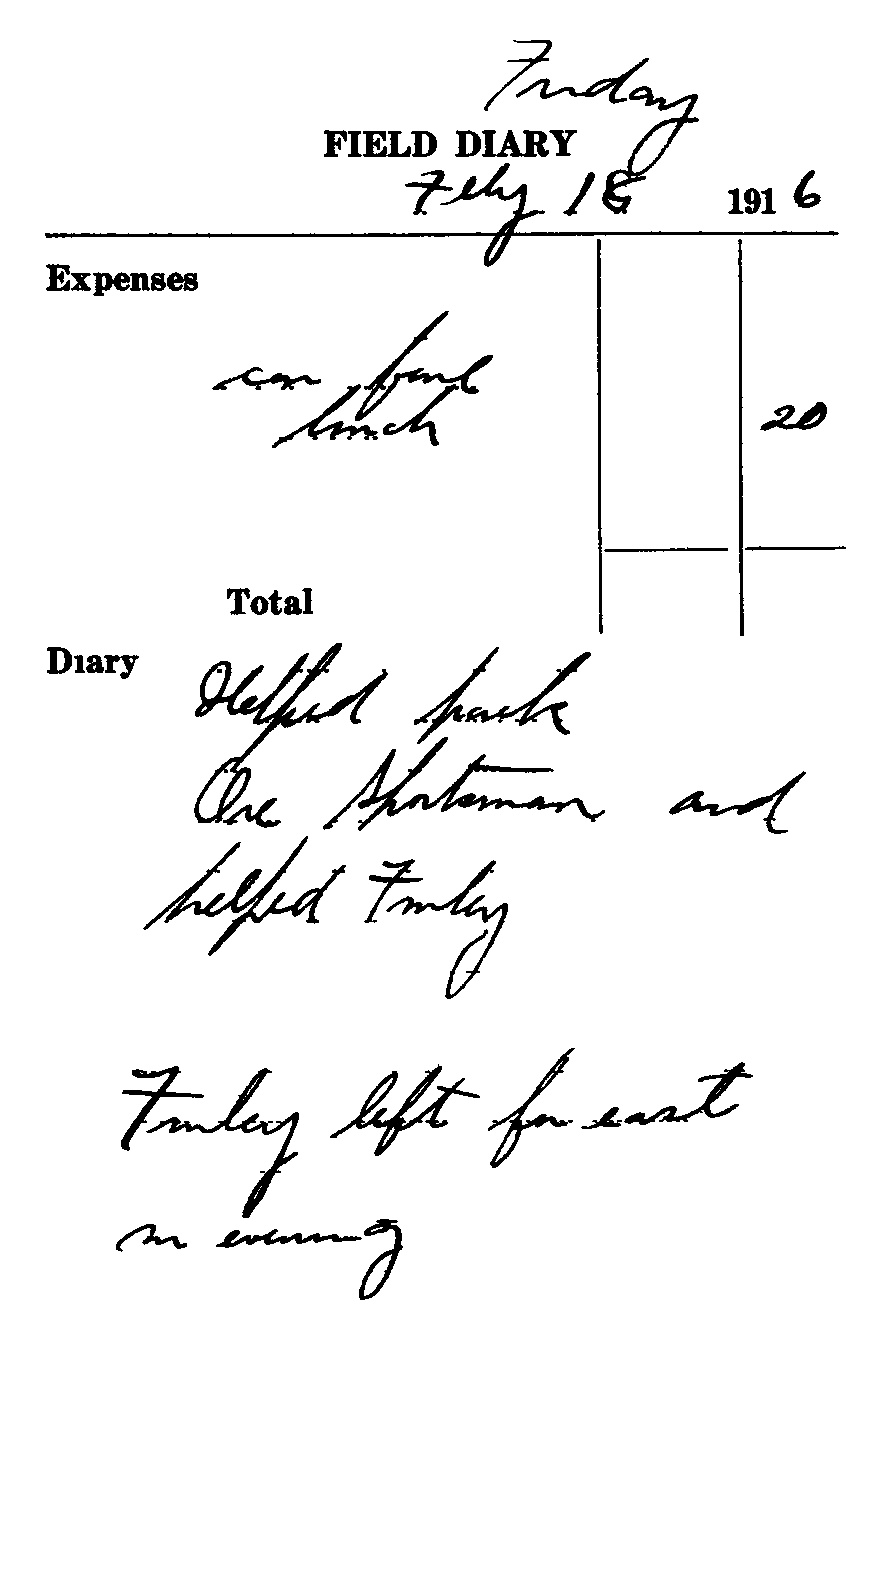 Friday
FIELD DIARY
Feby 18 1916
Expenses
car fare
lunch 20
Total
Diary Helped pack
Ore Sportsman and
helped Finlay
Finlay left for east
in evening